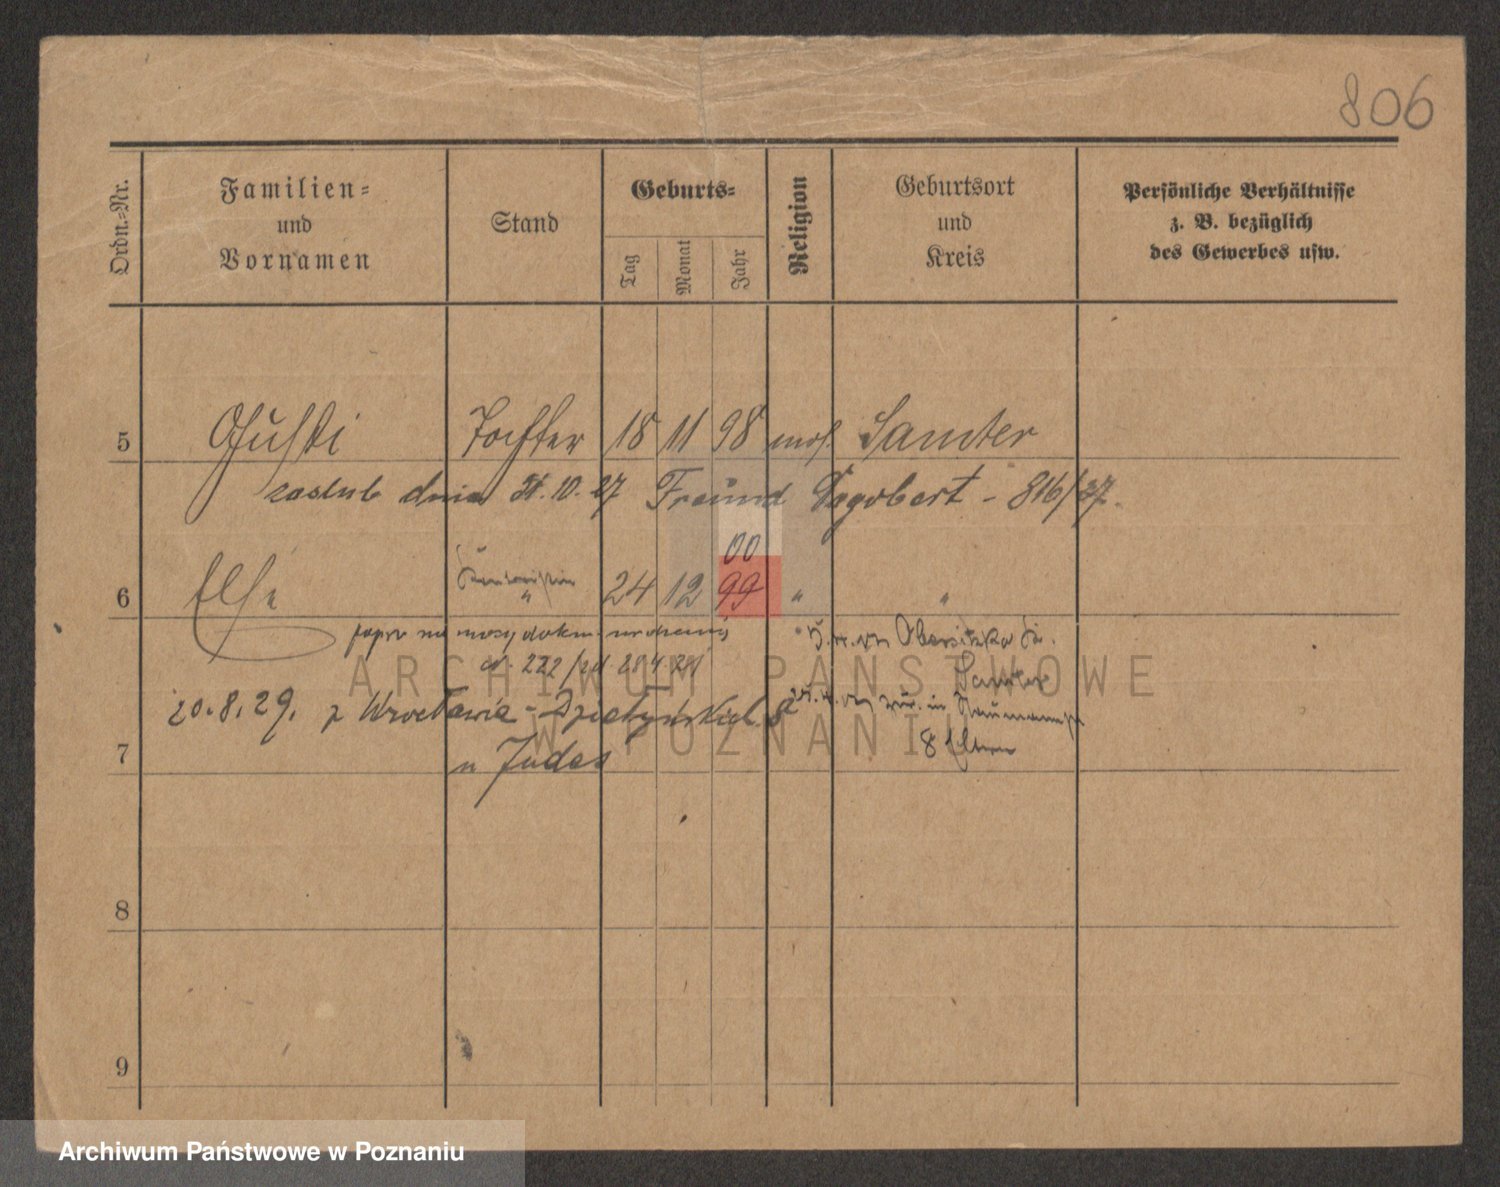 806
Ordn.=Nr.
Familien=
und
Vornamen
Stand
Geburts=
Tag
Monat
Jahr
Religion
Geburtsort
und
Kreis
Persönliche Verhältnisse
z. B. bezüglich
des Gewerbes usw.
5 Gusti Tochter 18 11 98 mos. Samter
zaślub dnia 10. 27 Freund Dagobert - 816/27.
00
6 Else " 24 12 99 " "
popr na mocy dokum.
222/ 28 4 21
Obersitzko
Samter
20.8.29. z Wrocławia - Działyńskich 8
in
7 u Judas
8 Eltern
8
9
ARCHIWUM PAŃSTWOWE
W POZNANIU
Archiwum Państwowe w Poznaniu